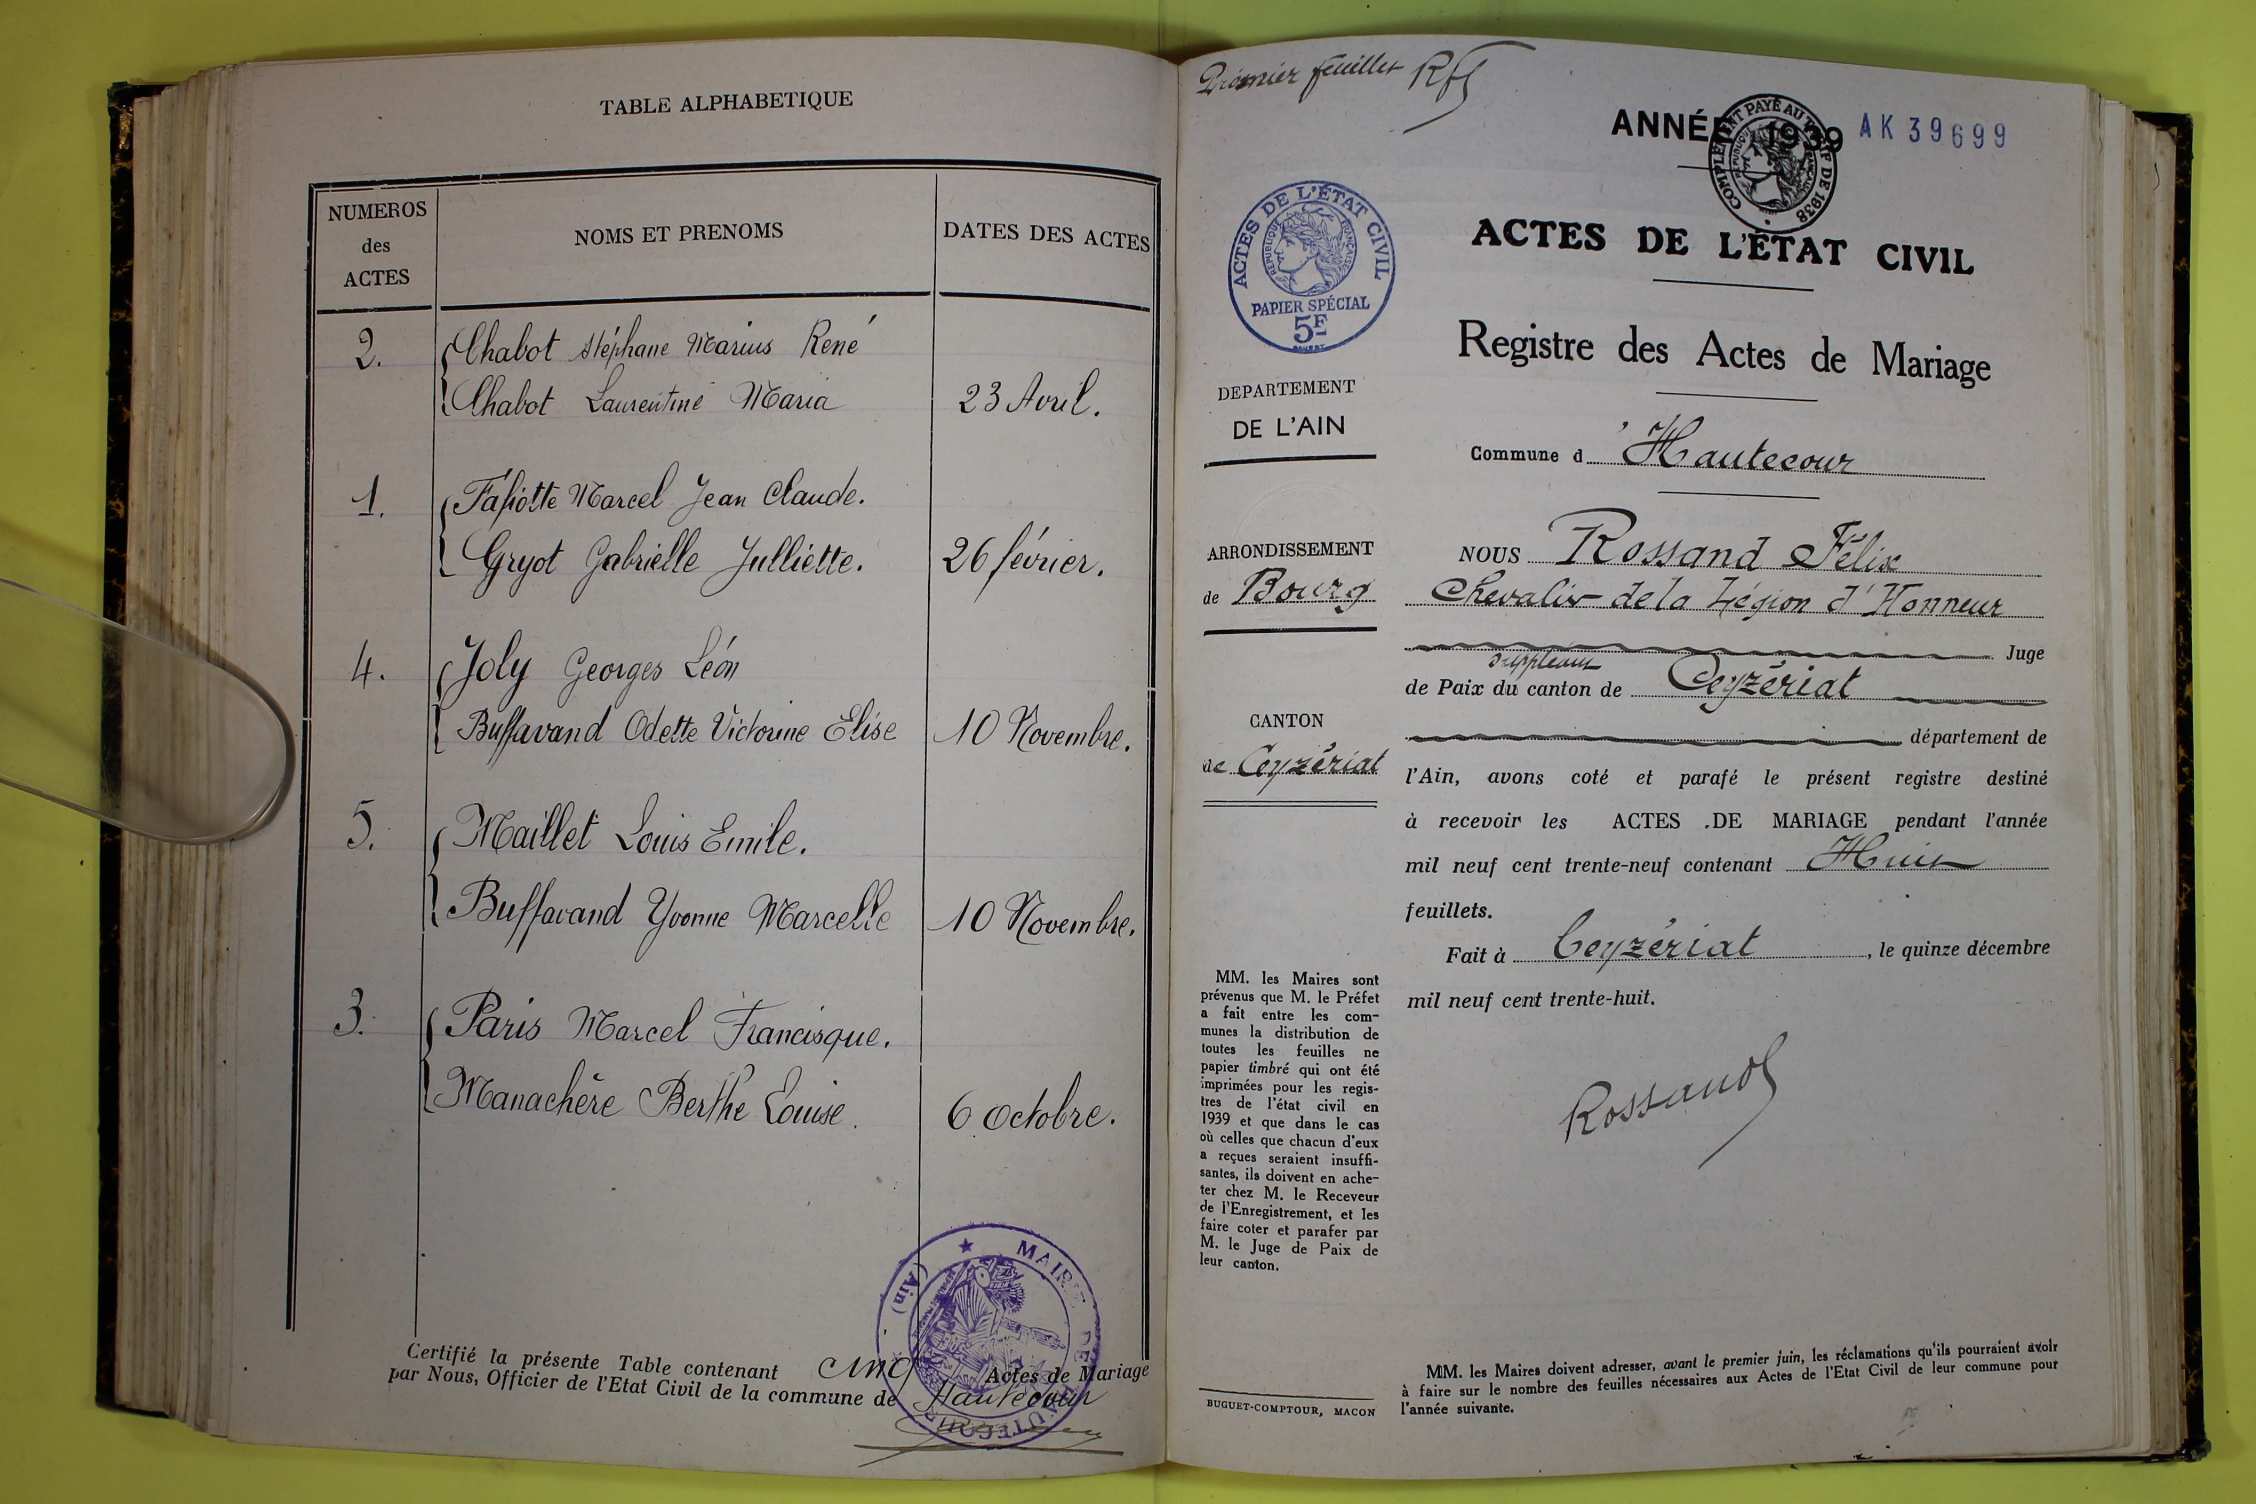 TABLE ALPHABETIQUE
NUMEROS
des
ACTES
NOMS ET PRENOMS
DATES DES ACTES
2. Chabot Stéphane Marius René
Chabot Laurentine Maria 23 Avril.
1. Marcel Jean Claude.
Gryot Gabrielle Julliette. 26 février.
4. Joly Georges Léon
Buffavand Odette Victorine Elise 10 Novembre.
5. Maillet Louis Emile.
Buffavand Yvonne Marcelle 10 Novembre.
3. Paris Marcel Francisque.
Manachère Berthe Louise. 6 Octobre.
Certifié la présente Table contenant cinq Actes de Mariage
par Nous, Officier de l'Etat Civil de la commune de Hautecour
MAIRIE DE HAUTECOUR (Ain)
Premier feuillet
ANNÉE 1939 AK 39699
COMPLÉMENT PAYÉ AU TARIF DE 1938
RÉPUBLIQUE FRANÇAISE
ACTES DE L'ÉTAT CIVIL
RÉPUBLIQUE FRANÇAISE
PAPIER SPÉCIAL
5F
ACTES DE L'ÉTAT CIVIL
Registre des Actes de Mariage
DEPARTEMENT
DE L'AIN
ARRONDISSEMENT
de Bourg
CANTON
de Ceyzériat
MM. les Maires sont
prévenus que M. le Préfet
a fait entre les com-
munes la distribution de
toutes les feuilles ne
papier timbré qui ont été
imprimées pour les regis-
tres de l'état civil en
1939 et que dans le cas
où celles que chacun d'eux
a reçues seraient insuffi-
santes, ils doivent en ache-
ter chez M. le Receveur
de l'Enregistrement, et les
faire coter et parafer par
M. le Juge de Paix de
leur canton.
BUGUET-COMPTOUR, MACON
Commune d'Hautecour
NOUS Rossand Félix
Chevalier de la Légion d'Honneur
Juge
suppléant
de Paix du canton de Ceyzériat
département de
l'Ain, avons coté et parafé le présent registre destiné
à recevoir les ACTES .DE MARIAGE pendant l'année
mil neuf cent trente-neuf contenant Huit
feuillets.
Fait à Ceyzériat, le quinze décembre
mil neuf cent trente-huit.
Rossand
MM. les Maires doivent adresser, avant le premier juin, les réclamations qu'ils pourraient avoir
à faire sur le nombre des feuilles nécessaires aux Actes de l'Etat Civil de leur commune pour
l'année suivante.